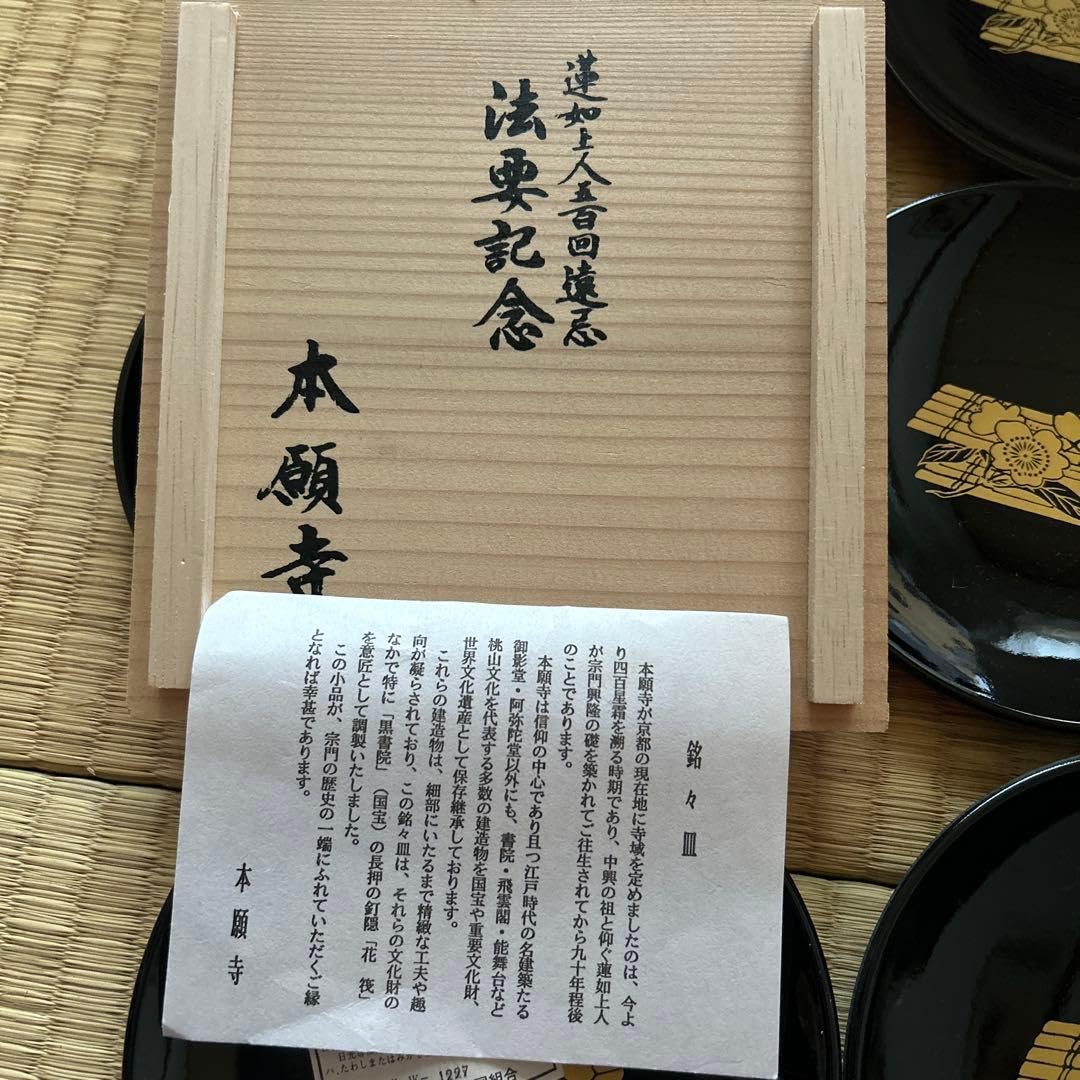 蓮如上人五百回遠忌
法要記念
本願寺
銘々皿
本願寺が京都の現在地に寺域を定めましたのは、今よ
り四百星霜を溯る時期であり、中興の祖と仰ぐ蓮如上人
が宗門興隆の礎を築かれてご往生されてから九十年程後
のことであります。
本願寺は信仰の中心であり且つ江戸時代の名建築たる
御影堂・阿弥陀堂以外にも、書院・飛雲閣・能舞台など
桃山文化を代表する多数の建造物を国宝や重要文化財、
世界文化遺産として保存継承しております。
これらの建造物は、細部にいたるまで精緻な工夫や趣
向が凝らされており、この銘々皿は、それらの文化財の
なかで特に「黒書院」（国宝）の長押の釘隠「花筏」
を意匠として調製いたしました。
この小品が、宗門の歴史の一端にふれていただくご縁
となれば幸甚であります。
本願寺
ハ、たわしまたはみが
1227
組合